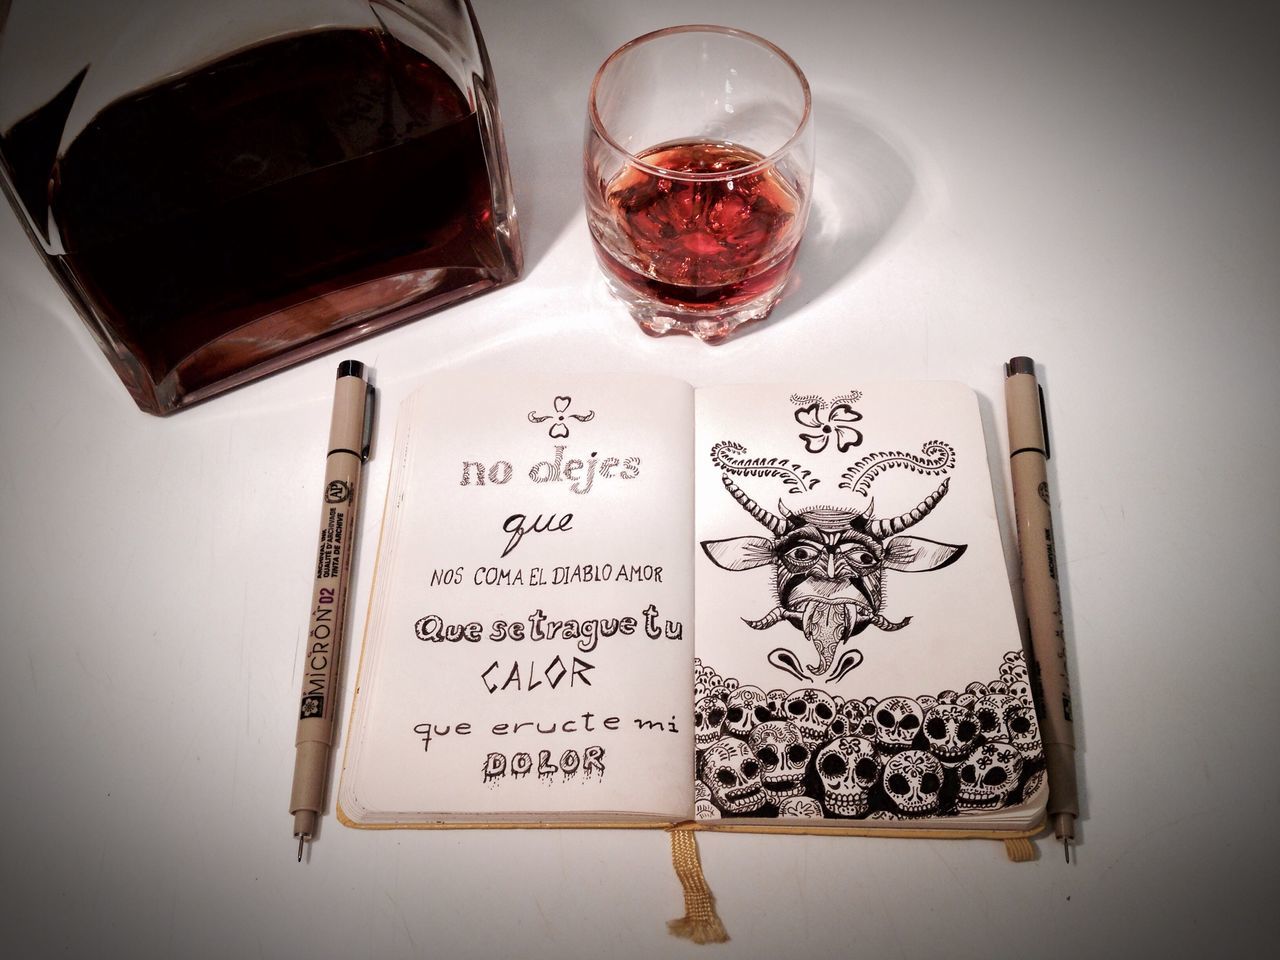 no dejes
que
NOS COMA EL DIABLO AMOR
Que se trague tu
CALOR
que eructe mi
DOLOR
MICRON 02
ARCHIVAL INK
QUALITÉ D'ARCHIVAGE
TINTA DE ARCHIVE
AP